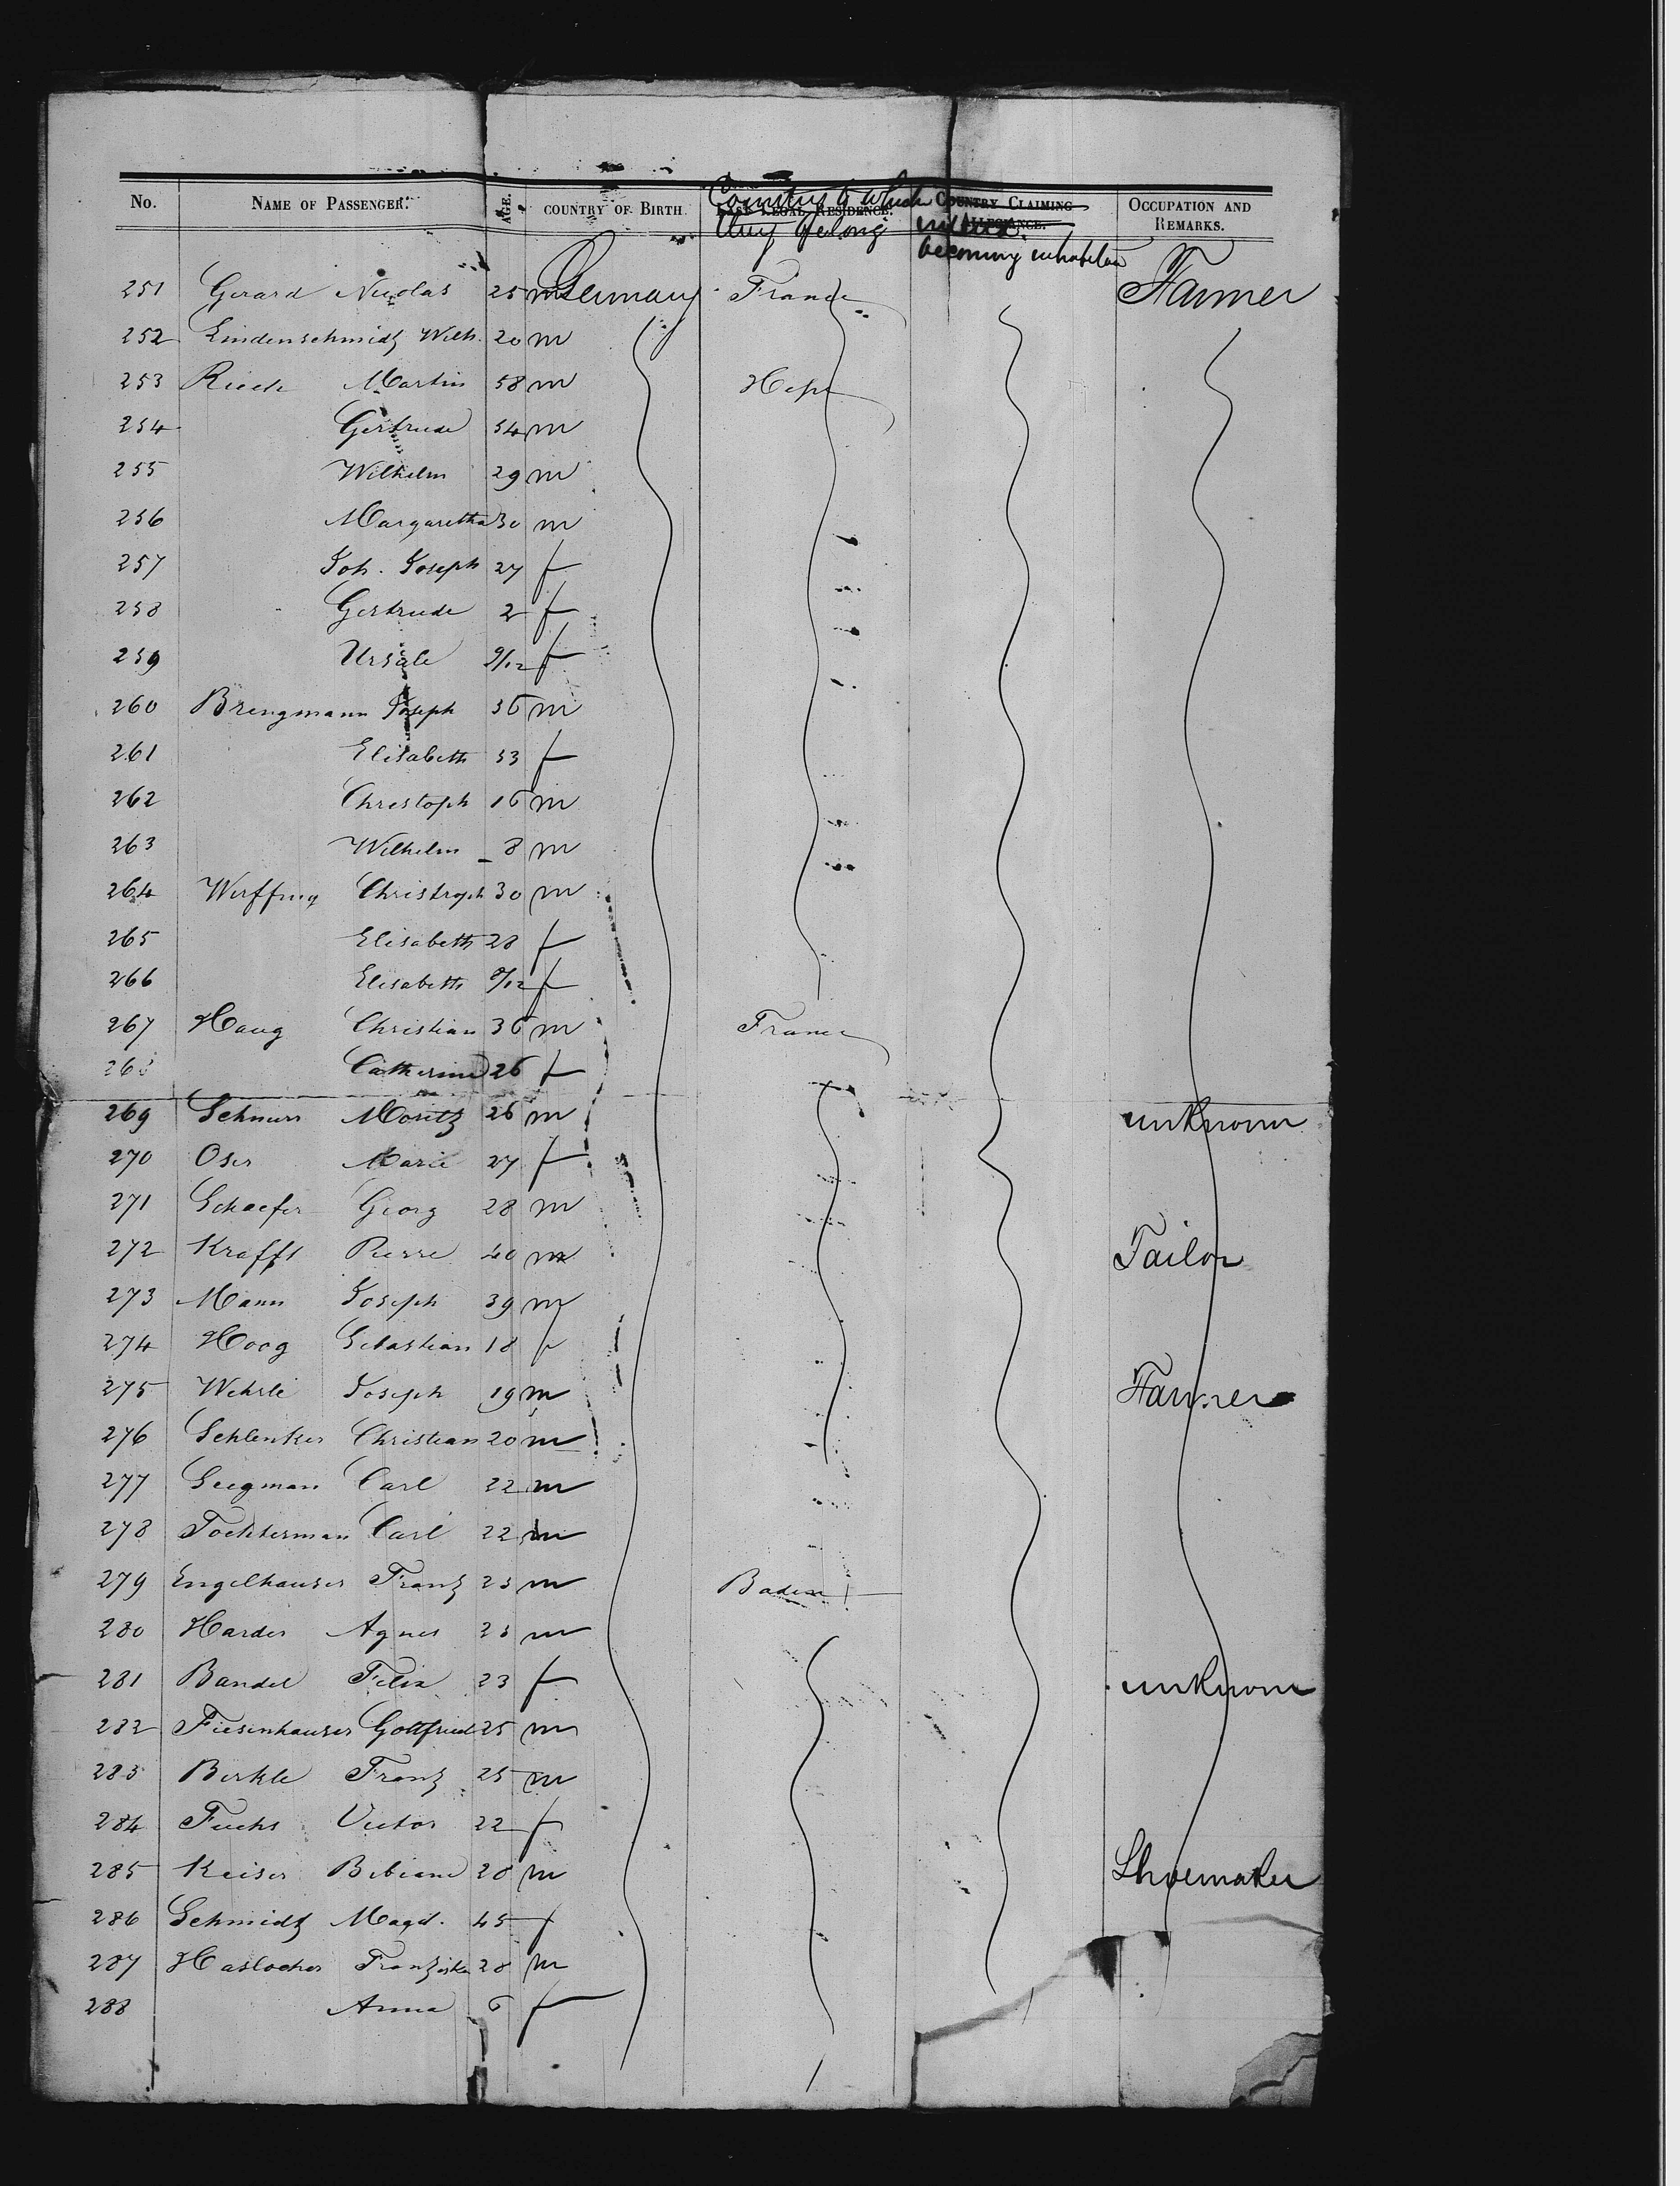 No. NAME OF PASSENGER. AGE. COUNTRY OF BIRTH. LAST LEGAL RESIDENCE. COUNTRY CLAIMING ALLEGIANCE. OCCUPATION AND REMARKS.
Countries to which they belong
becoming
251 Gerard Nicolas 25 m Germany France Farmer
252 Lindenschmidt Wilh. 20 m
253 Riede Martin 58 m Hess
254 Gertrude 54 m
255 Wilhelm 29 m
256 Margaretha 30 m
257 Joh. Joseph 27 f
258 Gertrude 2 f
259 Ursule 9/12 f
260 Brengmann Joseph 36 m
261 Elisabeth 33 f
262 Christoph 16 m
263 Wilhelm 8 m
264 Christoph 30 m
265 Elisabeth 28 f
266 Elisabeth 9/12 f
267 Haug Christian 36 m France
268 Catherine 26 f
269 Schnurr Moritz 26 m unknown
270 Oser Marie 27 f
271 Schaefer Georg 28 m
272 Krafft Pierre 40 m Tailor
273 Mann Joseph 39 m
274 Hoog Sebastian 18 f
275 Wehrle Joseph 19 m Farmer
276 Schlenker Christian 20 m
277 Seegman Carl 22 m
278 Tochterman Carl 22 m
279 Engelhauser Franz 23 m Baden
280 Harder Agnes 23 m
281 Bandel Felix 23 f unknown
282 Fiesenhauser Gottfried 25 m
283 Berkle Franz 25 m
284 Fuchs Victor 22 f
285 Keiser Bibiane 20 m Shoemaker
286 Schmidt Magd. 45 f
287 Haslocher Franziska 28 m
288 Anna 6 f